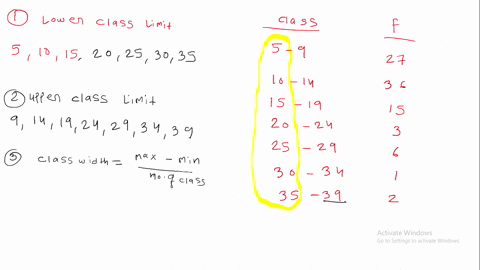 ① Lower class Limit
5, 10, 15, 20, 25, 30, 35
② upper class Limit
9, 14, 19, 24, 29, 34, 39
③ class width = max - min
no. of class
class f
5 - 9 27
10 - 14 36
15 - 19 15
20 - 24 3
25 - 29 6
30 - 34 1
35 - 39 2
Activate Windows
Go to Settings to activate Windows.